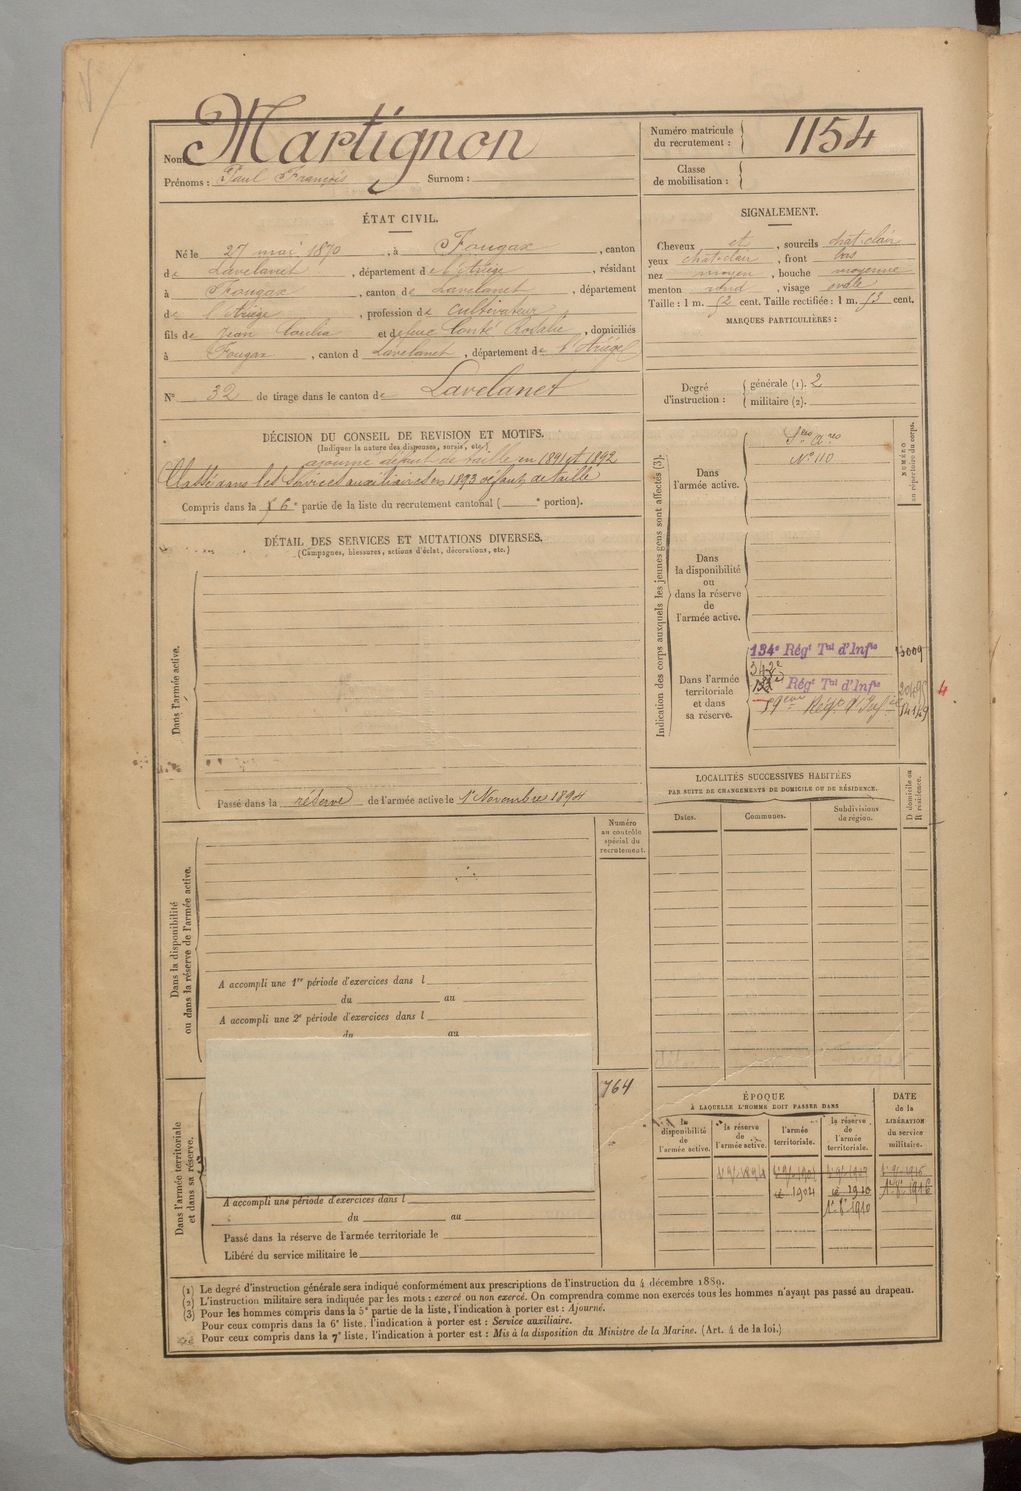 Nom Martignon
Prénoms : Paul François Surnom :
Numéro matricule
du recrutement : 1154
Classe
de mobilisation :
ÉTAT CIVIL.
Né le 27 mai 1870, à Fougax, canton
de Lavelanet, département de l'Ariège, résidant
à Fougax, canton de Lavelanet, département
de l'Ariège, profession de Cultivateur,
fils de Jean Coulia et de feue Conté Rosalie, domiciliés
à Fougax, canton d Lavelanet, département de l'Ariège
N° 32 de tirage dans le canton de Lavelanet
SIGNALEMENT.
Cheveux et, sourcils chat-clair
yeux chat-clair, front bas
nez moyen, bouche moyenne
menton rond, visage ovale
Taille : 1 m. 52 cent. Taille rectifiée : 1 m. 53 cent.
MARQUES PARTICULIÈRES :
Degré
d'instruction :
générale (1). 2
militaire (2).
DÉCISION DU CONSEIL DE REVISION ET MOTIFS.
(Indiquer la nature des dispenses, sursis, etc.)
ajourné défaut de taille en 1891 et 1892
Classé dans les services auxiliaires en 1893 défaut de taille
Compris dans la 6e partie de la liste du recrutement cantonal ( e portion).
DÉTAIL DES SERVICES ET MUTATIONS DIVERSES.
(Campagnes, blessures, actions d'éclat, décorations, etc.)
Dans l'armée active.
Passé dans la réserve de l'armée active le 1er Novembre 1894
Indication des corps auxquels les jeunes gens sont affectés (3).
NUMÉRO
au répertoire du corps.
Dans
l'armée active.
N° 110
Dans
la disponibilité
ou
dans la réserve
de
l'armée active.
Dans l'armée
territoriale
et dans
sa réserve.
134e Régt Tal d'Infie
342e
Régt Tal d'Infie
Régt d'Infie
20495
4
14149
LOCALITÉS SUCCESSIVES HABITÉES
PAR SUITE DE CHANGEMENTS DE DOMICILE OU DE RÉSIDENCE.
D domicile ou
R résidence.
Dates.
Communes.
Subdivisions
de région.
Numéro
au contrôle
spécial du
recrutement.
Dans la disponibilité
ou dans la réserve de l'armée active.
A accompli une 1re période d'exercices dans l
du au
A accompli une 2e période d'exercices dans l
du au
764
Dans l'armée territoriale
et dans sa réserve.
A accompli une période d'exercices dans l
du au
Passé dans la réserve de l'armée territoriale le
Libéré du service militaire le
ÉPOQUE
À LAQUELLE L'HOMME DOIT PASSER DANS
DATE
de la
LIBÉRATION
du service
militaire.
la
disponibilité
de
l'armée active.
la réserve
de
l'armée active.
l'armée
territoriale.
la réserve
de
l'armée
territoriale.
1904
1910
1910
1916
(1) Le degré d'instruction générale sera indiqué conformément aux prescriptions de l'instruction du 4 décembre 1889.
(2) L'instruction militaire sera indiquée par les mots : exercé ou non exercé. On comprendra comme non exercés tous les hommes n'ayant pas passé au drapeau.
(3) Pour les hommes compris dans la 5e partie de la liste, l'indication à porter est : Ajourné.
Pour ceux compris dans la 6e liste, l'indication à porter est : Service auxiliaire.
Pour ceux compris dans la 7e liste, l'indication à porter est : Mis à la disposition du Ministre de la Marine. (Art. 4 de la loi.)